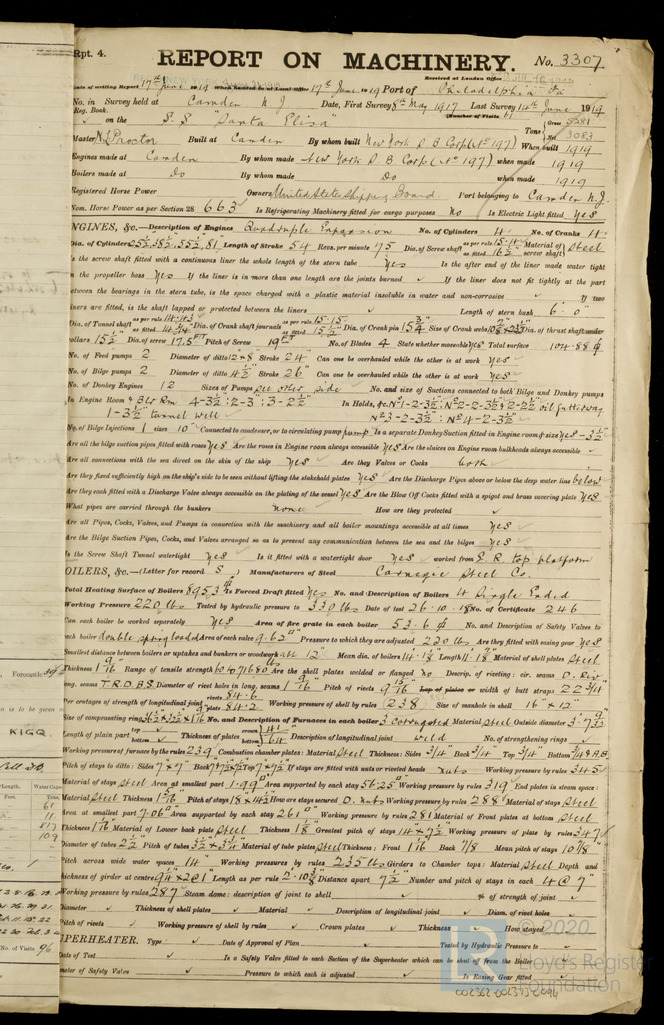 Rpt. 4.
REPORT ON MACHINERY.
No. 3307
Received at London Office
Date of writing Report 17th June 1919 When handed in at Local Office 17th June 1919 Port of Philadelphia Pa
No. in Survey held at Camden N J Date, First Survey 8th May 1917 Last Survey 14th June 1919
Reg. Book. (Number of Visits
on the S.S "Santa Elisa" Tons Gross 5281
Net 3083
Master Proctor Built at Camden By whom built New York S B Corp (No 197) When built 1919
Engines made at Camden By whom made New York S B Corp (No 197) when made 1919
Boilers made at Do By whom made Do when made 1919
Registered Horse Power Owners United States Shipping Board. Port belonging to Camden N.J.
Nom. Horse Power as per Section 28 663 Is Refrigerating Machinery fitted for cargo purposes no Is Electric Light fitted yes
NGINES, &c.—Description of Engines Quadruple Expansion No. of Cylinders 4 No. of Cranks 4
Dia. of Cylinders Length of Stroke 54 Revs. per minute 75 Dia. of Screw shaft as per rule as fitted 16½ Material of screw shaft Steel
Is the screw shaft fitted with a continuous liner the whole length of the stern tube yes Is the after end of the liner made water tight
in the propeller boss yes If the liner is in more than one length are the joints burned If the liner does not fit tightly at the part
between the bearings in the stern tube, is the space charged with a plastic material insoluble in water and non-corrosive If two
liners are fitted, is the shaft lapped or protected between the liners Length of stern bush 6' 0"
Dia. of Tunnel shaft as per rule as fitted Dia. of Crank shaft journals as per rule as fitted Dia. of Crank pin 15¾ Size of Crank webs Dia. of thrust shaft under
collars 15½ Dia. of screw 17.5 FT Pitch of Screw 19 FT No. of Blades 4 State whether moveable yes Total surface 104.88
No. of Feed pumps 2 Diameter of ditto 12×8 Stroke 24" Can one be overhauled while the other is at work yes
No. of Bilge pumps 2 Diameter of ditto 4½ Stroke 26" Can one be overhauled while the other is at work yes
No. of Donkey Engines 12 Sizes of Pumps see other side No. and size of Suctions connected to both Bilge and Donkey pumps
In Engine Room & Blr Rm 4-3½ : 2-3" : 3-2½" In Holds, &c. No1-2-3½ : No2-2-3½
1-3½" tunnel well No3-2-3½" : No4-2-3½"
No. of Bilge Injections 1 sizes 10" Connected to condenser, or to circulating pump pump Is a separate Donkey Suction fitted in Engine room & size yes - 3½
Are all the bilge suction pipes fitted with roses yes Are the roses in Engine room always accessible yes Are the sluices on Engine room bulkheads always accessible
Are all connections with the sea direct on the skin of the ship yes Are they Valves or Cocks both
Are they fixed sufficiently high on the ship's side to be seen without lifting the stokehold plates yes Are the Discharge Pipes above or below the deep water line below
Are they each fitted with a Discharge Valve always accessible on the plating of the vessel yes Are the Blow Off Cocks fitted with a spigot and brass covering plate yes
What pipes are carried through the bunkers none How are they protected
Are all Pipes, Cocks, Valves, and Pumps in connection with the machinery and all boiler mountings accessible at all times yes
Are the Bilge Suction Pipes, Cocks, and Valves arranged so as to prevent any communication between the sea and the bilges yes
Is the Screw Shaft Tunnel watertight yes Is it fitted with a watertight door yes worked from E.R. top platform
OILERS, &c.—(Letter for record S) Manufacturers of Steel Carnegie Steel Co.
Total Heating Surface of Boilers 8953 Is Forced Draft fitted yes No. and Description of Boilers 4 Single Ended
Working Pressure 220 lbs Tested by hydraulic pressure to 330 lbs Date of test 26.10.18 No. of Certificate 246
Can each boiler be worked separately yes Area of fire grate in each boiler 53.6 No. and Description of Safety Valves to
each boiler double spring loaded Area of each valve 9.62" Pressure to which they are adjusted 220 lbs Are they fitted with easing gear yes
Smallest distance between boilers or uptakes and bunkers or woodwork 12" Mean dia. of boilers Length Material of shell plates Steel
Thickness Range of tensile strength Are the shell plates welded or flanged no Descrip. of riveting: cir. seams D. Riv
long. seams T.R.D.B.S Diameter of rivet holes in long. seams 1 9/16" Pitch of rivets Lap of plates or width of butt straps 22¾"
Per centages of strength of longitudinal joint rivets 84.6 plate 84.2 Working pressure of shell by rules 238 Size of manhole in shell 16" × 12"
Size of compensating ring No. and Description of Furnaces in each boiler 3 corrugated Material steel Outside diameter
Length of plain part top bottom Thickness of plates crown bottom Description of longitudinal joint weld No. of strengthening rings
Working pressure of furnace by the rules 239 Combustion chamber plates: Material Steel Thickness: Sides ¾" Back ¾" Top ¾" Bottom
Pitch of stays to ditto: Sides 7×7 Back Top If stays are fitted with nuts or riveted heads nuts Working pressure by rules 345
Material of stays steel Area at smallest part 1.99" Area supported by each stay 56.25" Working pressure by rules 319 End plates in steam space:
Material steel Thickness Pitch of stays How are stays secured D. nuts Working pressure by rules 288 Material of stays steel
Area at smallest part 7.06" Area supported by each stay 261 Working pressure by rules 281 Material of Front plates at bottom Steel
Thickness Material of Lower back plate steel Thickness Greatest pitch of stays 14×7½" Working pressure of plate by rules 347
Diameter of tubes 2½ Pitch of tubes Material of tube plates steel Thickness: Front Back 7/8 Mean pitch of stays
Pitch across wide water spaces 14" Working pressures by rules 235 lbs Girders to Chamber tops: Material Steel Depth and
thickness of girder at centre Length as per rule Distance apart 7½" Number and pitch of stays in each 4 @ 7"
Working pressure by rules 287 Steam dome: description of joint to shell % of strength of joint
Diameter Thickness of shell plates Material Description of longitudinal joint Diam. of rivet holes
Pitch of rivets Working pressure of shell by rules Crown plates Thickness How stayed
UPERHEATER. Type Date of Approval of Plan Tested by Hydraulic Pressure to
Date of Test Is a Safety Valve fitted to each Section of the Superheater which can be shut off from the Boiler
meter of Safety Valve Pressure to which each is adjusted Is Easing Gear fitted
© 2020
Lloyd's Register
Foundation
002362-002373-0094
Forecastle
KIGQ
Water Capa
Feet. Tons.
61
11
817
109
No. of Visits 96